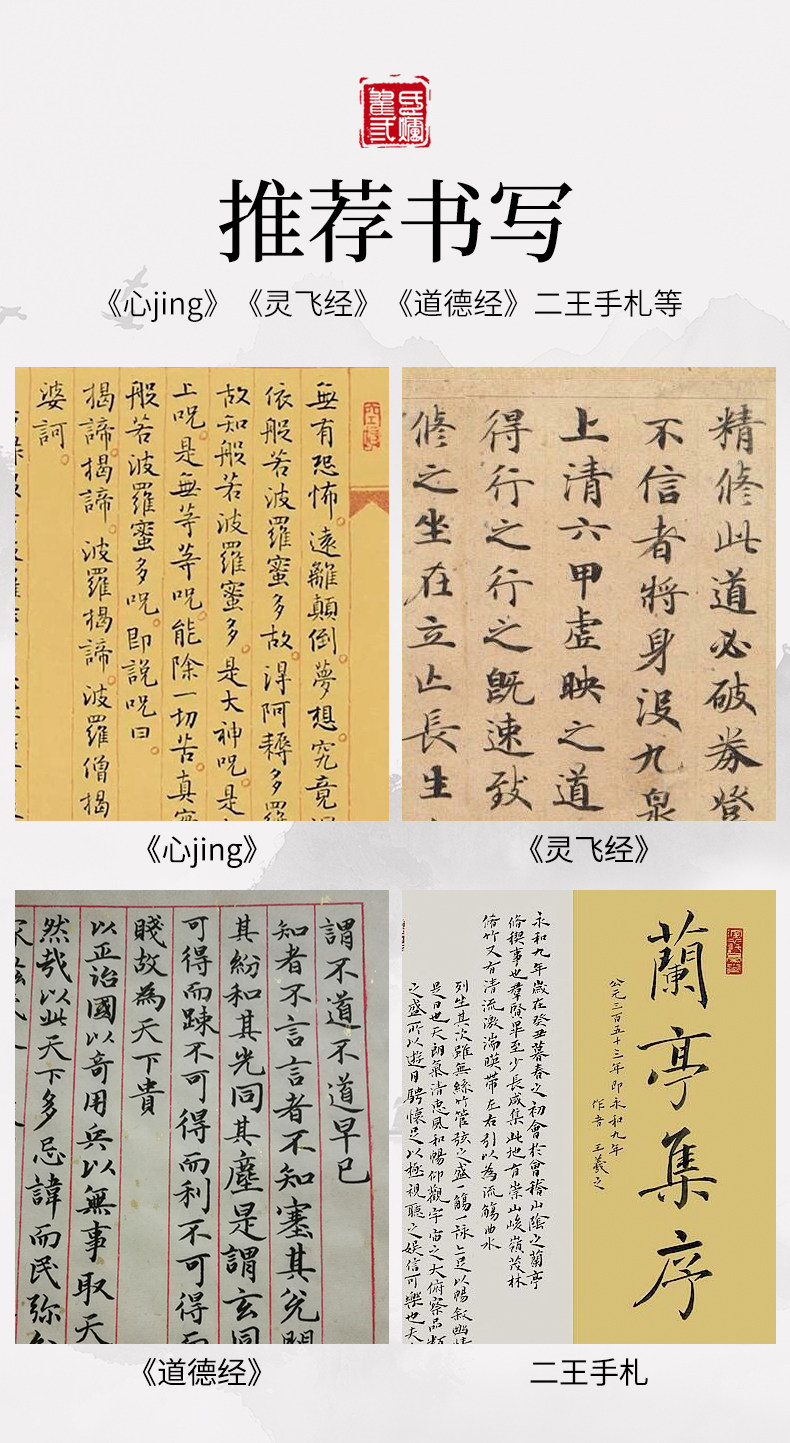 推荐书写
《心jing》《灵飞经》《道德经》二王手札等
無有恐怖遠離顛倒夢想究竟
依般若波羅蜜多故得阿耨多羅
故知般若波羅蜜多是大神咒是
上咒是無等等咒能除一切苦真實
般若波羅蜜多咒即說咒曰
揭諦揭諦波羅揭諦波羅僧揭
婆訶
《心jing》
精修此道必破券登
不信者將身没九泉
上清六甲虛映之道
得行之行之既速致
修之坐在立亾長生
《灵飞经》
謂不道不道早已
知者不言言者不知塞其兌閉
其紛和其光同其塵是謂玄同
可得而踈不可得而利不可得而
賤故為天下貴
以正治國以奇用兵以無事取天
然哉以此天下多忌諱而民弥
《道德经》
蘭亭集序
公元三百五十三年即永和九年
作者 王羲之
永和九年歲在癸丑暮春之初會於會稽山陰之蘭亭
脩稧事也羣賢畢至少長咸集此地有崇山峻嶺茂林
脩竹又有清流激湍暎帶左右引以為流觴曲水
列坐其次雖無絲竹管弦之盛一觴一詠亦足以暢敘幽情
是日也天朗氣清惠風和暢仰觀宇宙之大俯察品類
之盛所以遊目騁懷足以極視聽之娛信可樂也夫
二王手札